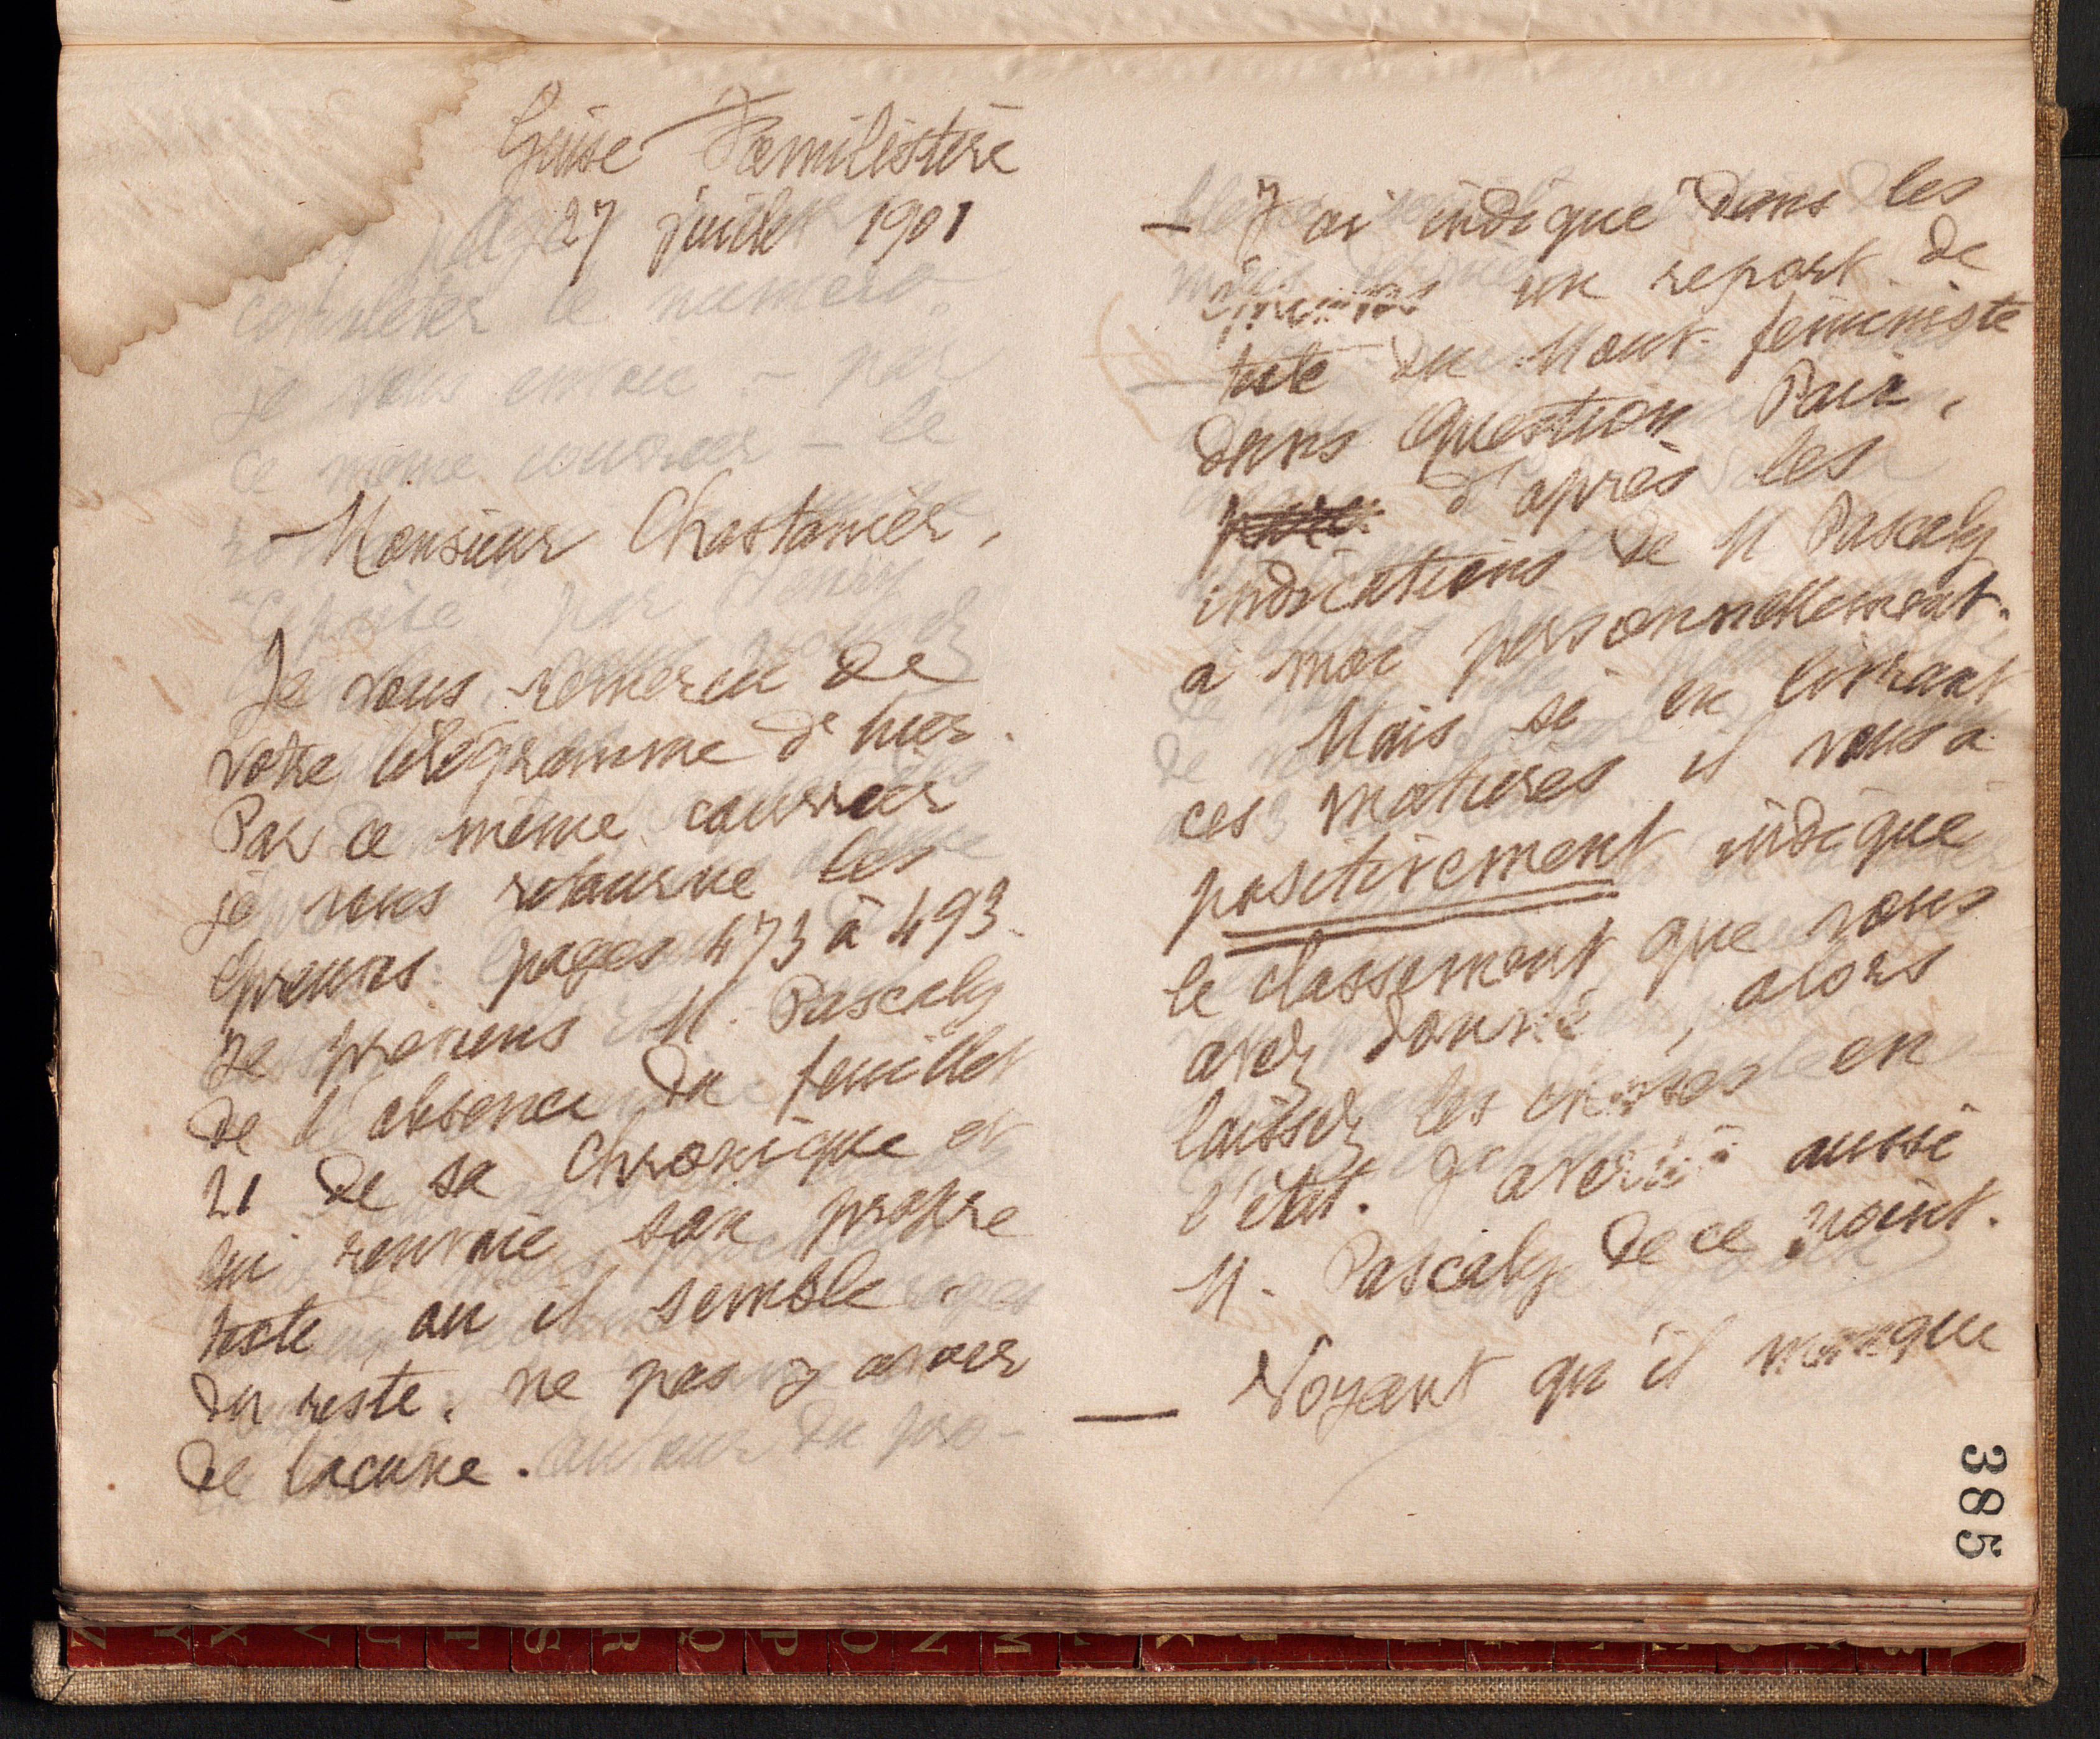 Guise Familistère
27 juillet 1901
Monsieur Chastanier,
Je vous remercie de
votre télégramme d'hier.
Par ce même courrier
je vous retourne les
épreuves pages 473 à 493.
Je préviens M. Pascaly
de l'absence du feuillet
21 de sa Chronique et
lui renvoie son propre
texte, où il semble
du reste, ne pas y avoir
de lacune.
— J'ai indiqué dans les
épreuves un report de
texte du Mouv. féministe
dans Question Paix,
d'après les
indications de M Pascaly
à moi personnellement.
Mais si en livrant
ces matières il vous a
positivement indiqué
le classement que vous
avez donné, alors
laissez les choses en
l'état. J'avertis aussi
M. Pascaly de ce point.
— Voyant qu'il manque
385
Z Y X V U T S R Q P O N M